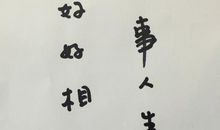 事人生
好好相